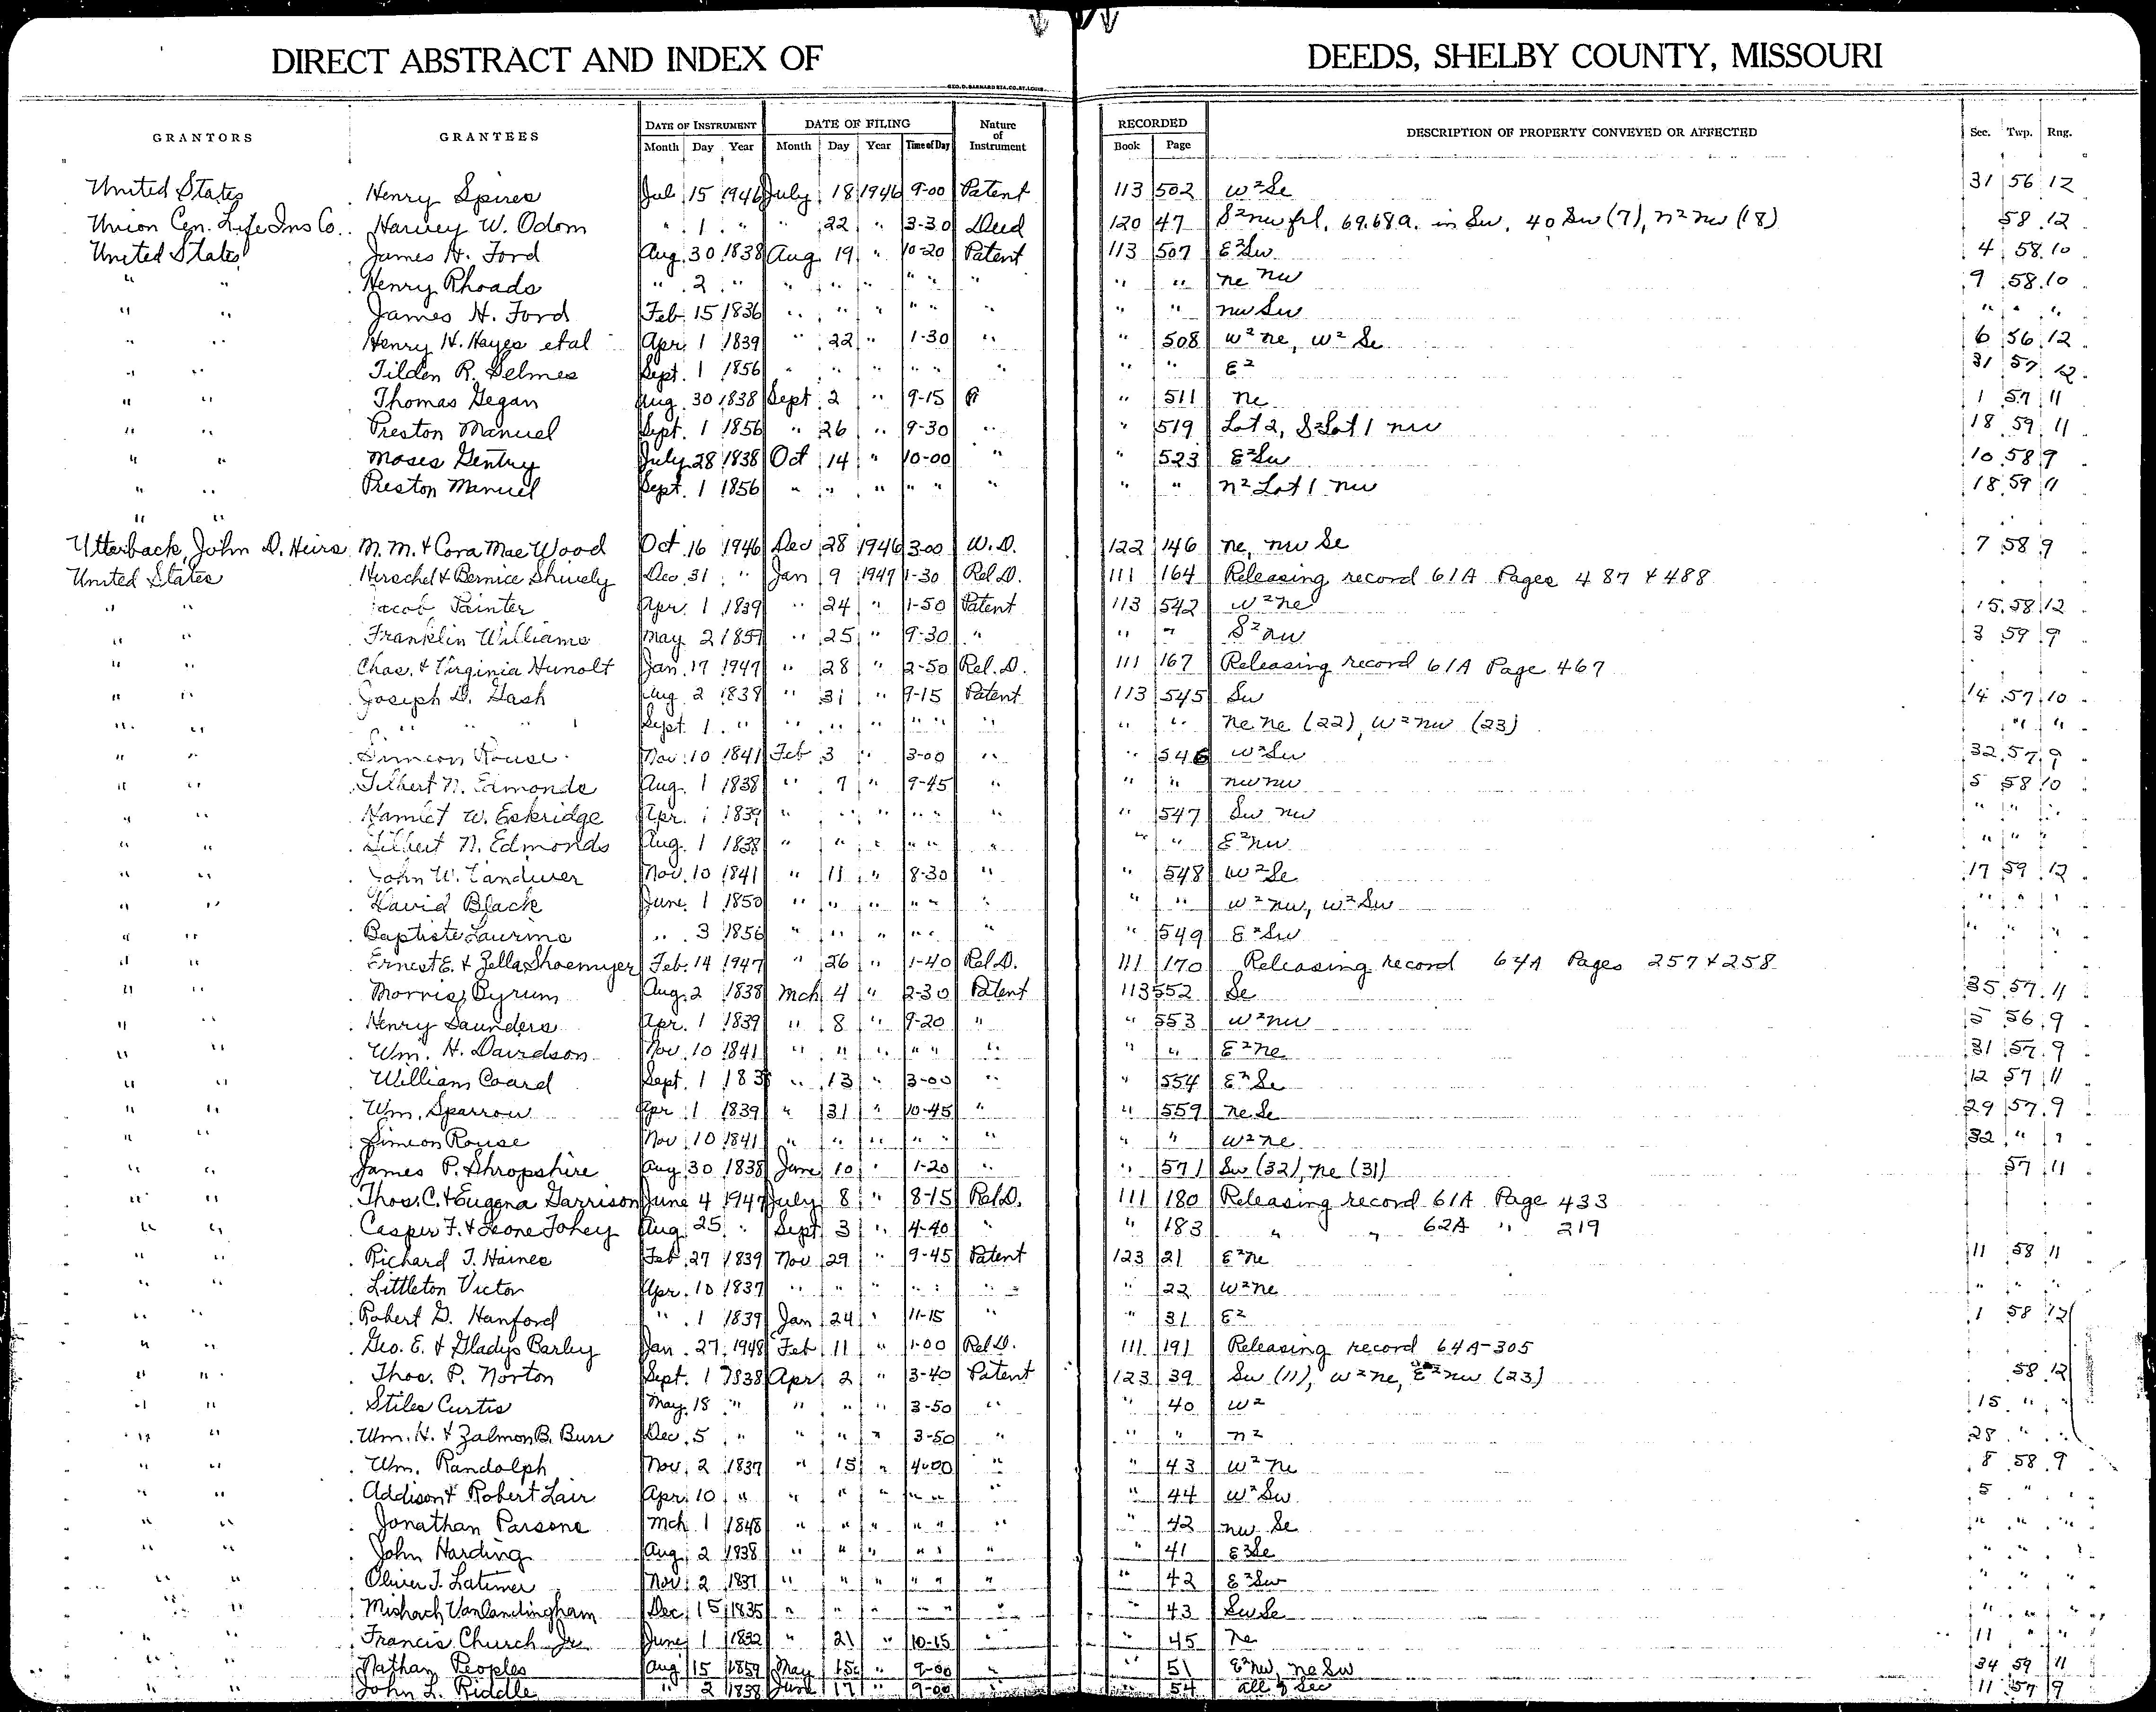 DIRECT ABSTRACT AND INDEX OF DEEDS, SHELBY COUNTY, MISSOURI
GEO. D. BARNARD STA. CO. ST. LOUIS
GRANTORS GRANTEES DATE OF INSTRUMENT DATE OF FILING Nature of Instrument RECORDED DESCRIPTION OF PROPERTY CONVEYED OR AFFECTED Sec. Twp. Rng.
Month Day Year Month Day Year Time of Day Book Page
United States Henry Spires Jul 15 1946 July 18 1946 9-00 Patent 113 502 W²Se 31 56 12
Union Cen. Life Ins Co. Harvey W. Odom " 1 " " 22 " 3-30 Deed 120 47 S²nw frl. 69.68a. in Sw, 40 Sw (7), n²nw (18) 58 12
United States James H. Ford Aug 30 1838 Aug 19 " 10-20 Patent 113 507 E²Sw 4 58 10
" " Henry Rhoads " 2 " " " " " " " " " ne nw 9 58 10
" " James H. Ford Feb 15 1836 " " " " " " " " nw Sw " " "
" " Henry H. Hayes et al Apr 1 1839 " 22 " 1-30 " " 508 W²ne, W²Se 6 56 12
" " Tilden R. Selmes Sept. 1 1856 " " " " " " " " E² 31 57 12
" " Thomas Gegan Aug. 30 1838 Sept. 2 " 9-15 " 511 ne 1 57 11
" " Preston Manuel Sept. 1 1856 " 26 " 9-30 " " 519 Lot 2, S²Lot 1 nw 18 59 11
" " Moses Gentry July 28 1838 Oct 14 " 10-00 " " 523 E²Sw 10 58 9
" " Preston Manuel Sept. 1 1856 " " " " " " " " n² Lot 1 nw 18 59 11
" "
Utterback, John D. Heirs M. M. & Cora Mae Wood Oct 16 1946 Dec 28 1946 3-00 W. D. 122 146 ne, nw Se 7 58 9
United States Herschel & Bernice Shively Dec 31 " Jan 9 1947 1-30 Rel D. 111 164 Releasing record 61A Pages 487 & 488
" " Jacob Painter Apr. 1 1839 " 24 " 1-50 Patent 113 542 W²ne 15 58 12
" " Franklin Williams May 2 1859 " 25 " 9-30 " " " S²nw 3 59 9
" " Chas. & Virginia Hunolt Jan. 17 1947 " 28 " 2-50 Rel. D. 111 167 Releasing record 61A Page 467
" " Joseph D. Gash Aug 2 1839 " 31 " 9-15 Patent 113 545 Sw 14 57 10
" " " " " Sept 1 " " " " " " " " " ne ne (22), W²nw (23) " "
" " Simeon Rouse Nov. 10 1841 Feb 3 " 3-00 " " 546 W²Sw 32 57 9
" " Gilbert N. Edmonds Aug. 1 1838 " 7 " 9-45 " " " nw nw 5 58 10
" " Hamlet W. Eskridge Apr. 1 1839 " " " " " " " 547 Sw nw " " "
" " Gilbert N. Edmonds Aug. 1 1838 " " " " " " " " E²nw " " "
" " John W. Vandiver Nov. 10 1841 " 11 " 8-30 " " 548 W²Se 17 59 12
" " David Black June 1 1850 " " " " " " " " W²nw, W²Sw " " "
" " Baptiste Laurins " 3 1856 " " " " " " " 549 E²Sw " " "
" " Ernest E. & Zella Shoemyer Feb. 14 1947 " 26 " 1-40 Rel D. 111 170 Releasing record 64A Pages 257 & 258
" " Morris Byrum Aug. 2 1838 Mch 4 " 2-30 Patent 113 552 Se 35 57 11
" " Henry Saunders Apr. 1 1839 " 8 " 9-20 " " 553 W²nw 5 56 9
" " Wm. H. Davidson Nov. 10 1841 " " " " " " " " E²ne 31 57 9
" " William Coard Sept. 1 1838 " 13 " 3-00 " " 554 E²Se 12 57 11
" " Wm. Sparrow Apr 1 1839 " 31 " 10-45 " " 559 ne Se 29 57 9
" " Simeon Rouse Nov 10 1841 " " " " " " " " W²ne 32 " "
" " James P. Shropshire Aug 30 1838 June 10 " 1-20 " " 571 Sw (32), ne (31) 57 11
" " Thos. C. & Eugena Garrison June 4 1947 July 8 " 8-15 Rel D. 111 180 Releasing record 61A Page 433
" " Casper F. & Leone Fohey Aug 25 " Sept 3 " 4-40 " " 183 " " 62A " 219
" " Richard T. Haines Feb. 27 1839 Nov 29 " 9-45 Patent 123 21 E²ne 11 58 11
" " Littleton Victor Apr. 10 1837 " " " " " " " 22 W²ne " " "
" " Robert G. Hanford " 1 1839 Jan 24 " 11-15 " " 31 E² 1 58 12
" " Geo. E. & Gladys Barley Jan. 27 1948 Feb 11 " 1-00 Rel D. 111 191 Releasing record 64A-305
" " Thos. P. Norton Sept. 1 1838 Apr 2 " 3-40 Patent 123 39 Sw (11), W²ne, E²nw (23) 58 12
" " Stiles Curtis May 18 " " " " 3-50 " " 40 W² 15 " "
" " Wm. H. & Zalmon B. Burr Dec. 5 " " " " 3-50 " " " n² 28 " "
" " Wm. Randolph Nov. 2 1837 " 15 " 4-00 " " 43 W²ne 8 58 9
" " Addison & Robert Lair Apr. 10 " " " " " " " " 44 W²Sw 5 " "
" " Jonathan Parsons Mch 1 1848 " " " " " " " 42 nw Se " " "
" " John Harding Aug 2 1838 " " " " " " " 41 E²Se " " "
" " Oliver T. Latimer Nov. 2 1837 " " " " " " " 42 E²Sw " " "
" " Mishach VanLandingham Dec 15 1835 " " " " " " " 43 Sw Se " " "
" " Francis Church Jr. June 1 1832 " 21 " 10-15 " " 45 ne 11 " "
" " Nathan Peoples Aug 15 1859 May 15 " 9-00 " " 51 E²nw, ne Sw 34 59 11
" " John L. Riddle " 2 1838 June 17 " 9-00 " " 54 all of Sec 11 57 9